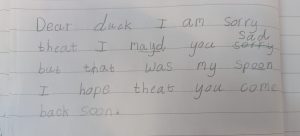 Dear duck I am sorry
theat I mayd you sorry sad
but that was my spoon
I hope theat you come
back soon.